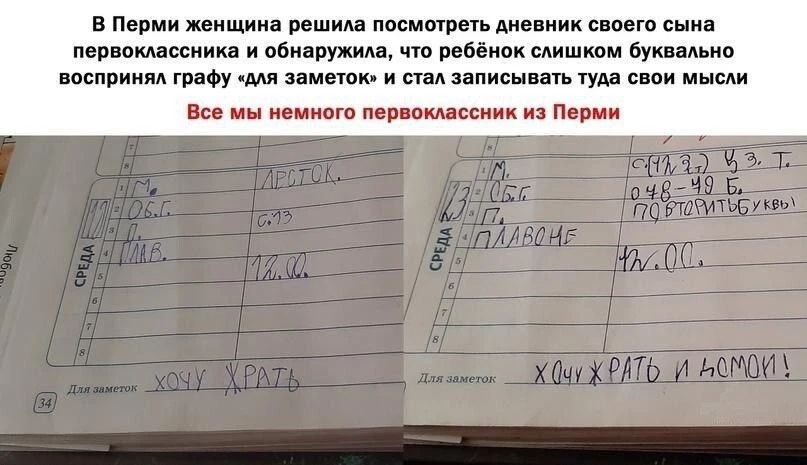 В Перми женщина решила посмотреть дневник своего сына
первоклассника и обнаружила, что ребёнок слишком буквально
воспринял графу «для заметок» и стал записывать туда свои мысли
Все мы немного первоклассник из Перми
7
8
СРЕДА
1 М. ЛЕСТОК.
2 ОБ.Г.
3 П. С.13
4 ПЛАВ.
5 12.00.
6
7
8
Для заметок ХОЧУ ЖРАТЬ
34
8
СРЕДА 23
1 М. С.(12 з.) Ц З. Т.
2 ОБ.Г. 078-79 Б.
3 П. ПОВТОРИТЬ БУКВЫ
4 ПЛАВОНЕ
5 12.00.
6
7
8
Для заметок ХОЧУ ЖРАТЬ И ДОМОЙ!